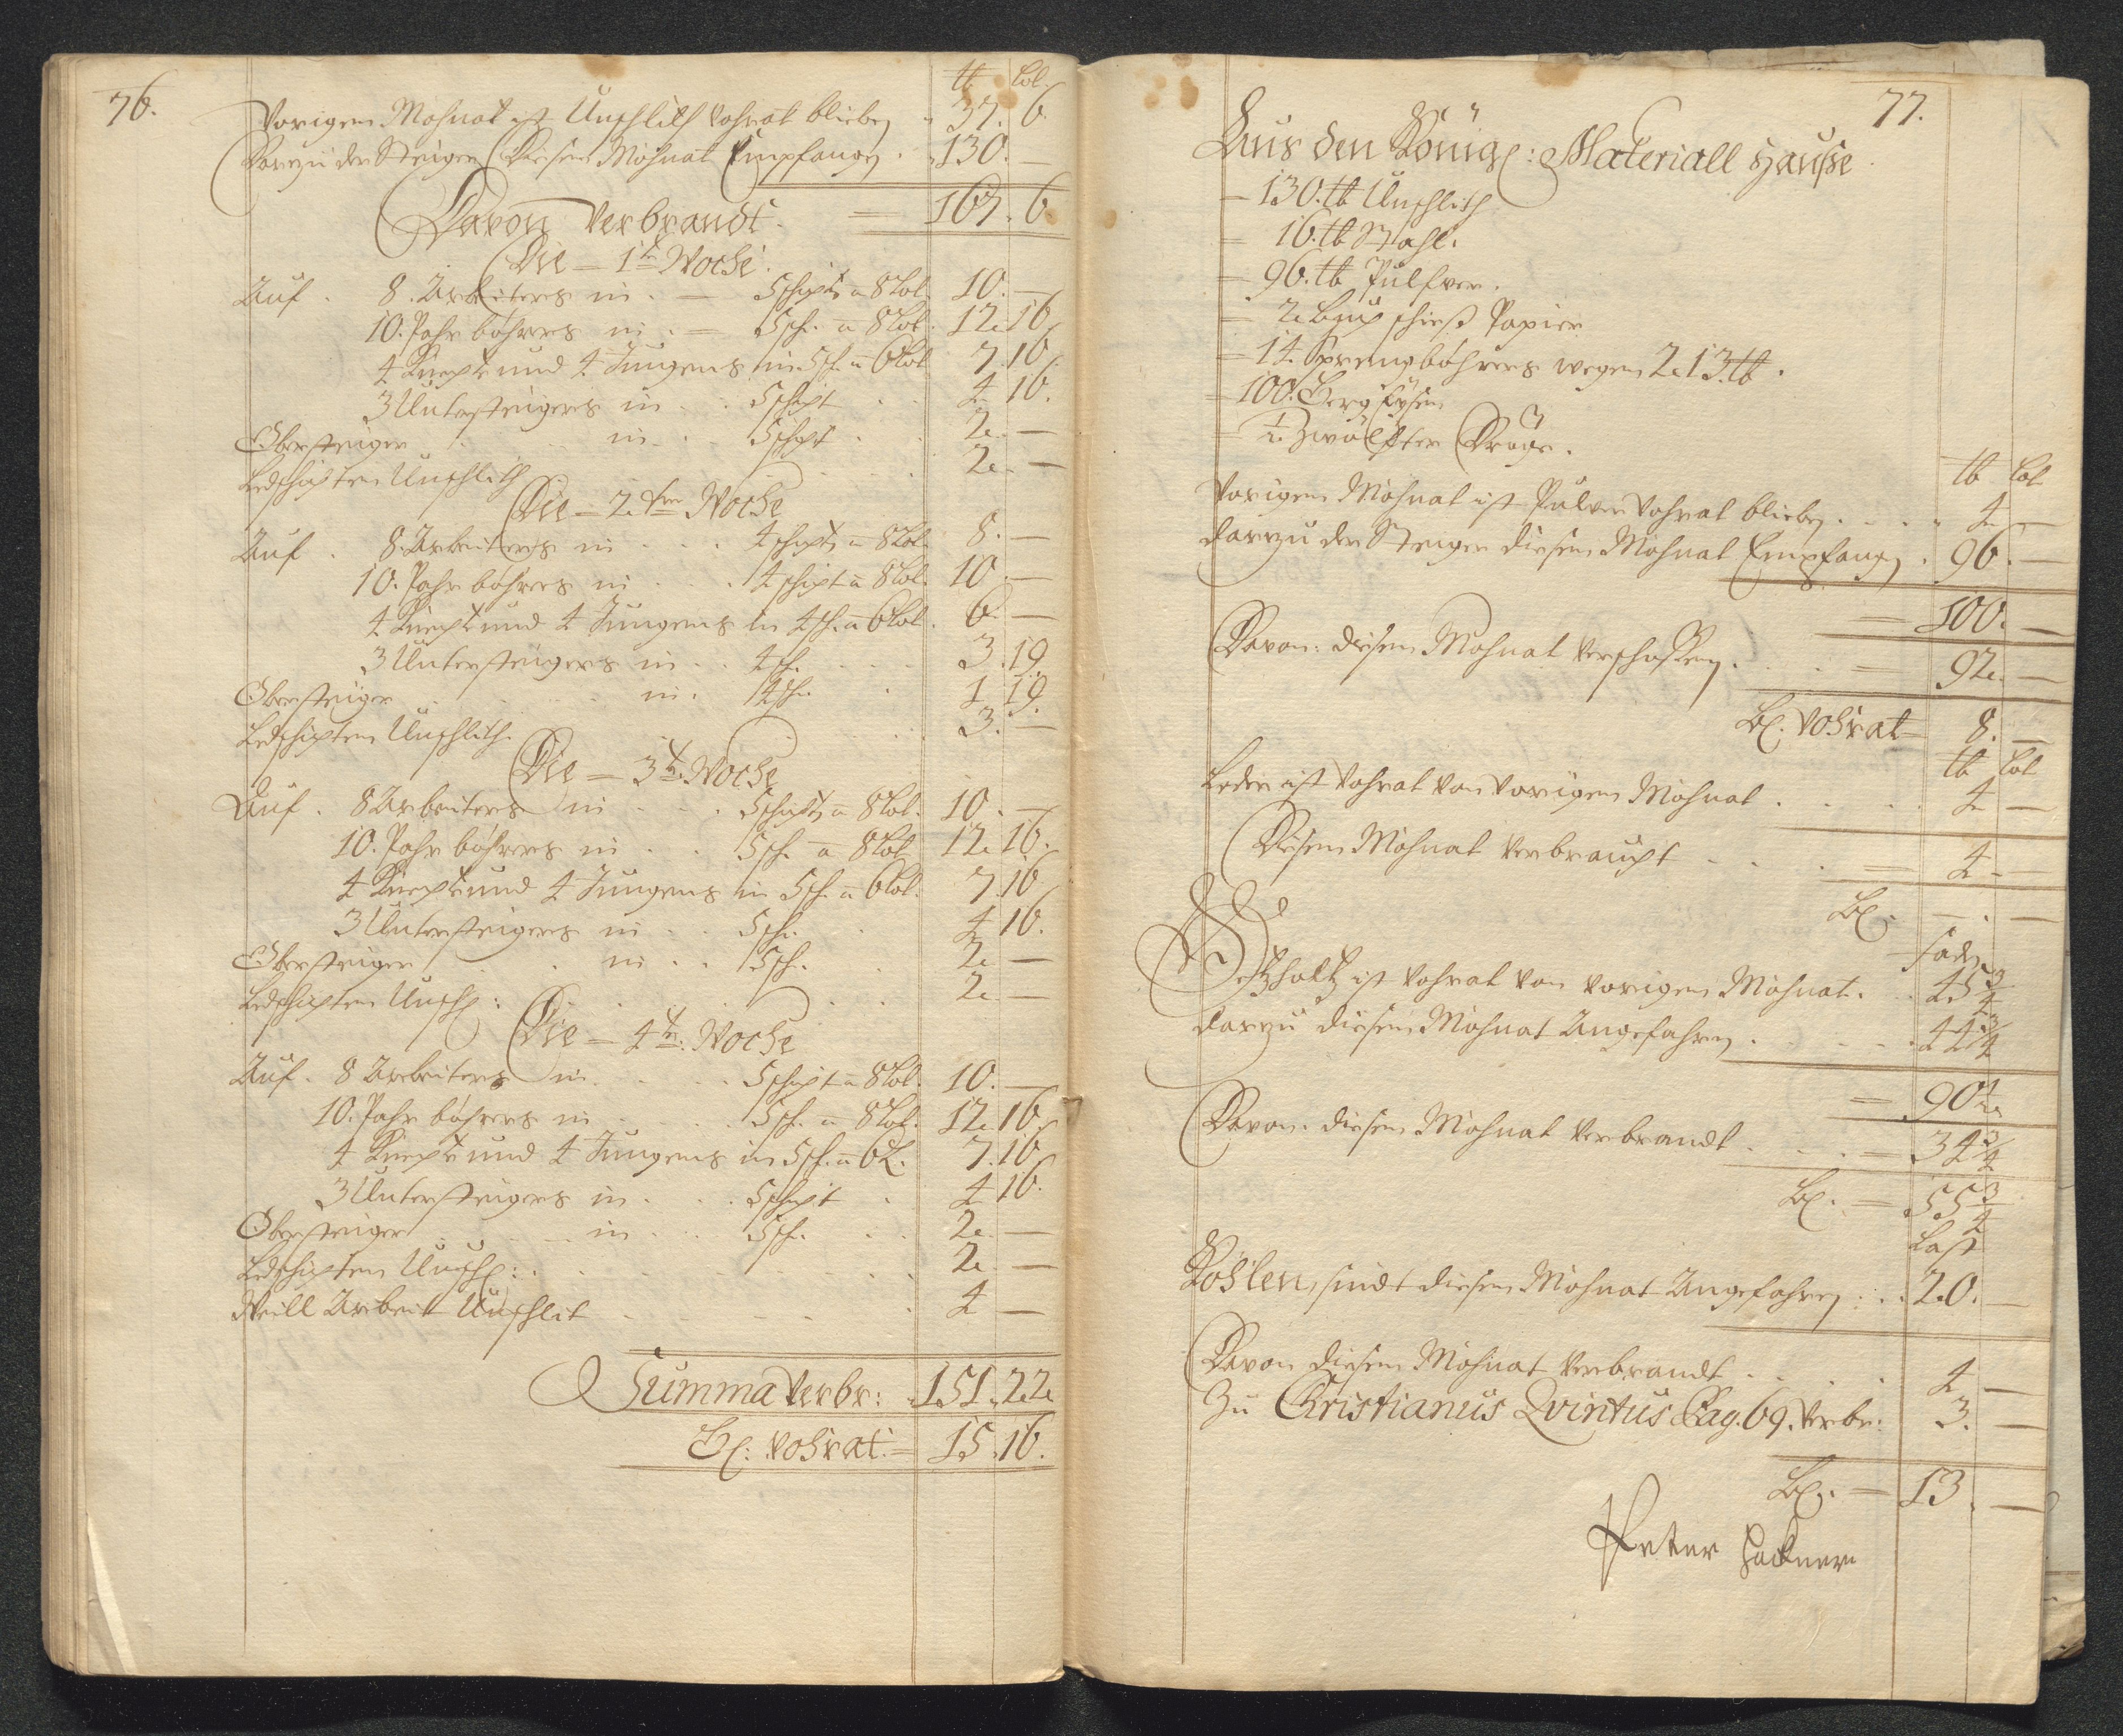 76.
tb Lot
Vorigen Mohnat ist Unschlith Vohrat blieben 37. 6.
Darzu der Steiger Diesen Mohnat Empfangen. 130. —
Davon Verbrandt. = 167. 6.
Die — 1te Woche.
Auf. 8. Arbeiters in. — 5 schicht a 8 Lot. 10. —
10. Pahr böhrers in. — 5 sch. a 8 Lot. 12. 16.
4 Knecht und 4 Jungens in 5 sch. a 6 Lot 7. 16.
3 Untersteigers in . . 5 schicht . . 4. 16.
Obersteiger . . in . . 5 schicht . 2. —
Ledschichten Unschlith . . . 2. —
Die — 2. ten Woche
Auf. 8. Arbeiters in . . . 4 schicht a 8 Lot. 8. —
10. Pahr böhrers in . . . 4 schicht a 8 Lot. 10 —
4 Knecht und 4 Jungens in 4 sch. a 6 Lot. 6. —
3 Untersteigers in . . 4 sch. . . . 3. 19.
Obersteiger . . . . in. 4 sch. . 1. 19.
Ledschichten Unschlith. . . . 3. —
Die — 3te Woche
Auf. 8 Arbeiters in . . . 5 schicht a 8 Lot. 10. —
10. Pahr böhrers in . . 5 sch. a 8 Lot 12. 16.
4 Knecht und 4 Jungens in 5 sch. a 6 Lot. 7. 16
3 Untersteigers in . . 5 sch. . 4. 16.
Obersteiger . . in . . 5 sch. . 2. —
Ledschichten Unschl: . . . . 2. —
Die — 4te. Woche
Auf. 8 Arbeiters in. . . . 5 schicht a 8 Lot. 10. —
10. Pahr böhrers in . . . . 5 sch. a 8 Lot. 12. 16.
4 Knecht und 4 Jungens in 5 sch. a 6 L. 7. 16
3 Untersteigers in . . . 5 schicht . 4. 16.
Obersteiger . . . in . . . 5 sch. . . 2. —
Ledschichten Unschl: . . . . . 2. —
Arbeit Unschlit . . . . . 4 —
Summa Verbr: 151. 22
Bl: Vohrat. = 15. 16.
77.
Aus den Königl: Materiall Hausse
= 130. tb Unschlith
= 16. tb Stahl.
= 96. tb Pulfver.
= 2. Buch schieß Papier
= 14. Sprengböhrers wegen 213. tb.
= 100. Berg Eysen
= 1/2. Zwölffter Dröge.
tb Lot
Vorigen Mohnat ist Pulver Vohrat blieben . . . 4. —
darzu der Steiger diesen Mohnat Empfangen . 96. —
= 100. —
Davon: diesen Mohnat Verschossen. . . . = 92. —
Bl. Vohrat 8. —
tb Lot
Leder ist Vohrat von Vorigen Mohnat . . . . 4 —
Diesen Mohnat Verbraucht . . . = 4 —
Bl. — . —
Fadn
Setzholtz ist Vohrat von vorigen Mohnat. . . 45 3/4
darzu diesen Mohnat Angefahren . . . . . 44 3/4
= 90 1/2
Davon. diesen Mohnat Verbrandt . . . = 34 3/4
Bl. = 55 3/4
Last
Kohlen, sindt diesen Mohnat Angefahren . . . 20. —
Davon diesen Mohnat Verbrandt . . . . 4 —
Zu Christianus Qvintus Pag. 69. Verbr. 3. —
Bl. = 13. —
Peter